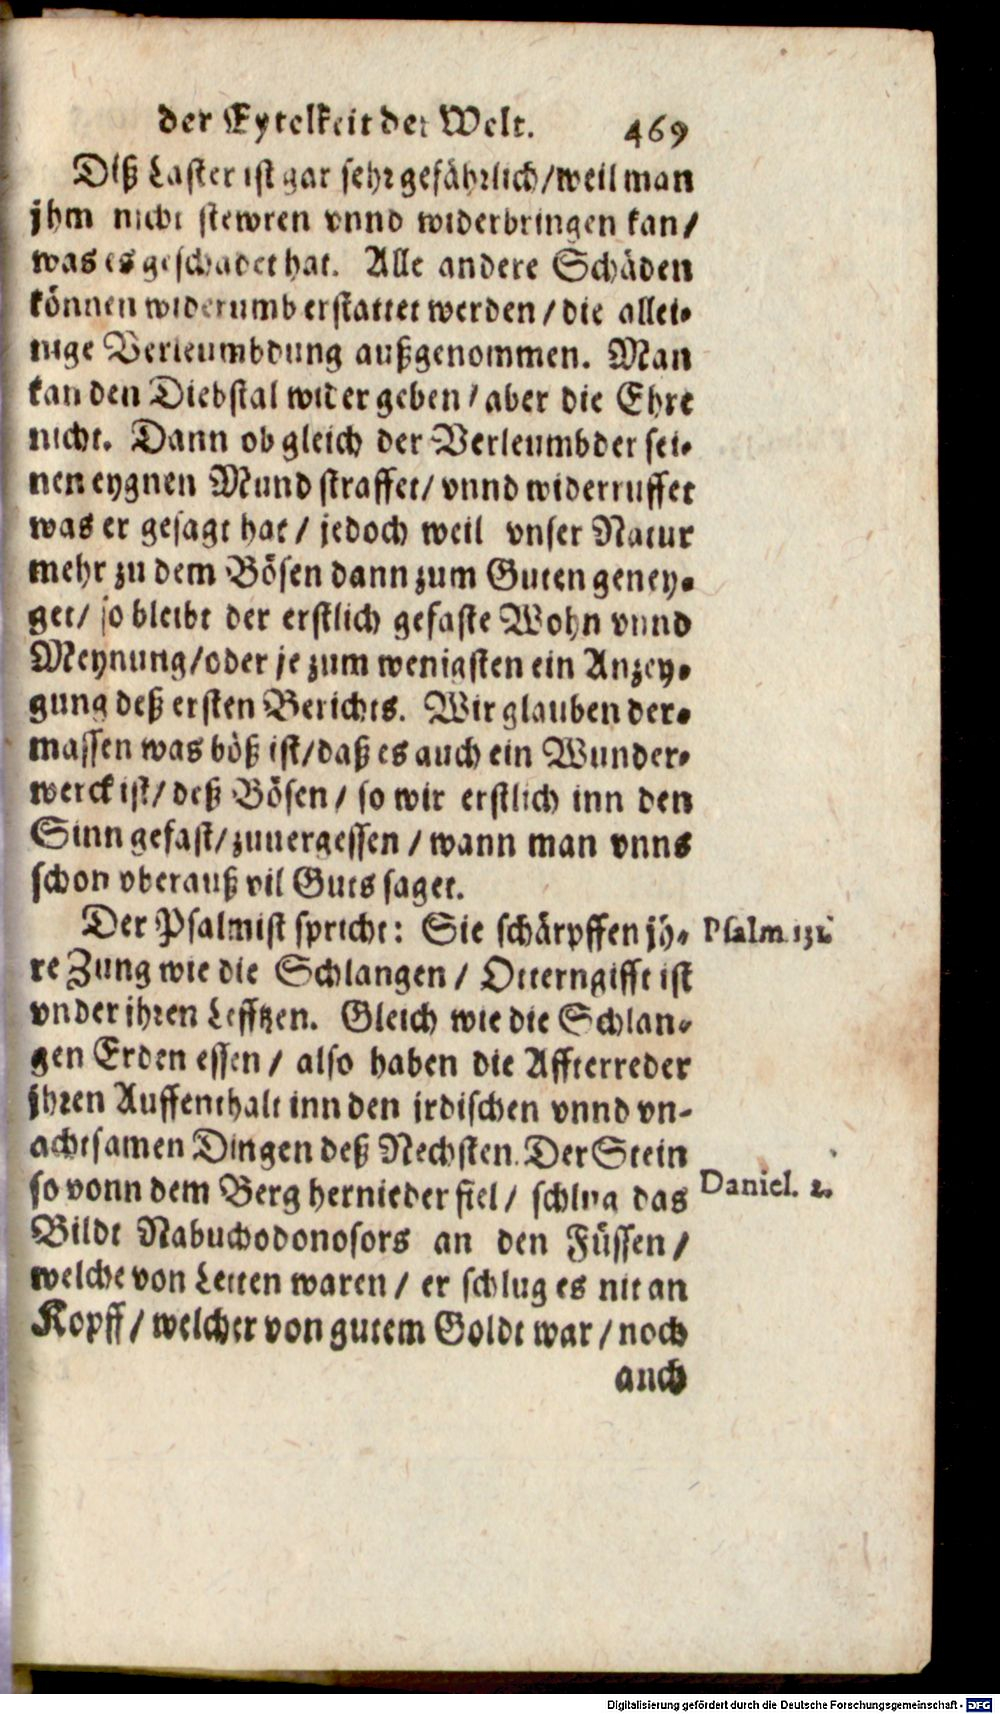 der Eytelkeit der Welt. 469
Diß Laster ist gar sehr gefährlich/weil man
jhm nicht stewren vnnd widerbringen kan/
was es geschadet hat. Alle andere Schäden
können widerumb erstattet werden/die allei-
nige Verleumbdung außgenommen. Man
kan den Diebstal wider geben/aber die Ehre
nicht. Dann ob gleich der Verleumbder sei-
nen eygnen Mund straffet/vnnd widerruffet
was er gesagt hat/jedoch weil vnser Natur
mehr zu dem Bösen dann zum Guten geney-
get/so bleibt der erstlich gefaste Wohn vnnd
Meynung/oder je zum wenigsten ein Anzey-
gung deß ersten Berichts. Wir glauben der-
massen was böß ist/daß es auch ein Wunder-
werck ist/deß Bösen/so wir erstlich inn den
Sinn gefast/zuuergessen/wann man vnns
schon vberauß vil Guts saget.
Der Psalmist spricht: Sie schärpffen jh-
re Zung wie die Schlangen/Otterngifft ist
vnder ihren Lefftzen. Gleich wie die Schlan-
gen Erden essen/also haben die Affterreder
jhren Auffenthalt inn den irdischen vnnd vn-
achtsamen Dingen deß Nechsten. Der Stein
so vonn dem Berg hernieder fiel/schlug das
Bildt Nabuchodonosors an den Füssen/
welche von Letten waren/er schlug es nit an
Kopff/welcher von gutem Goldt war/noch
auch
Psalm.
Daniel. 2.
Digitalisierung gefördert durch die Deutsche Forschungsgemeinschaft - DFG